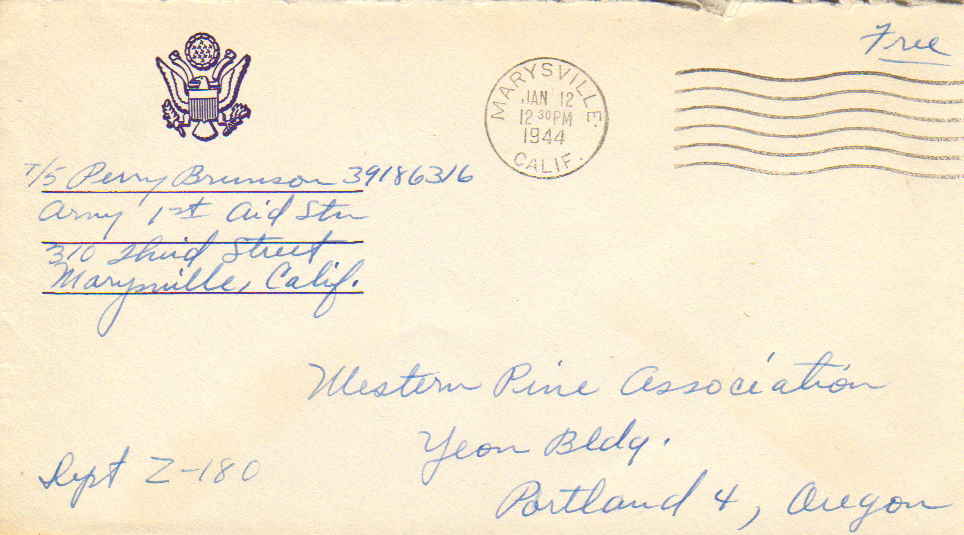 Free
MARYSVILLE
JAN 12
12 30 PM
1944
CALIF.
T/5 Perry Brunson 39186316
Army 1st Aid Stn
310 Third Street
Marysville, Calif.
Western Pine Association
Yeon Bldg.
Portland 4, Oregon
Dept Z-180